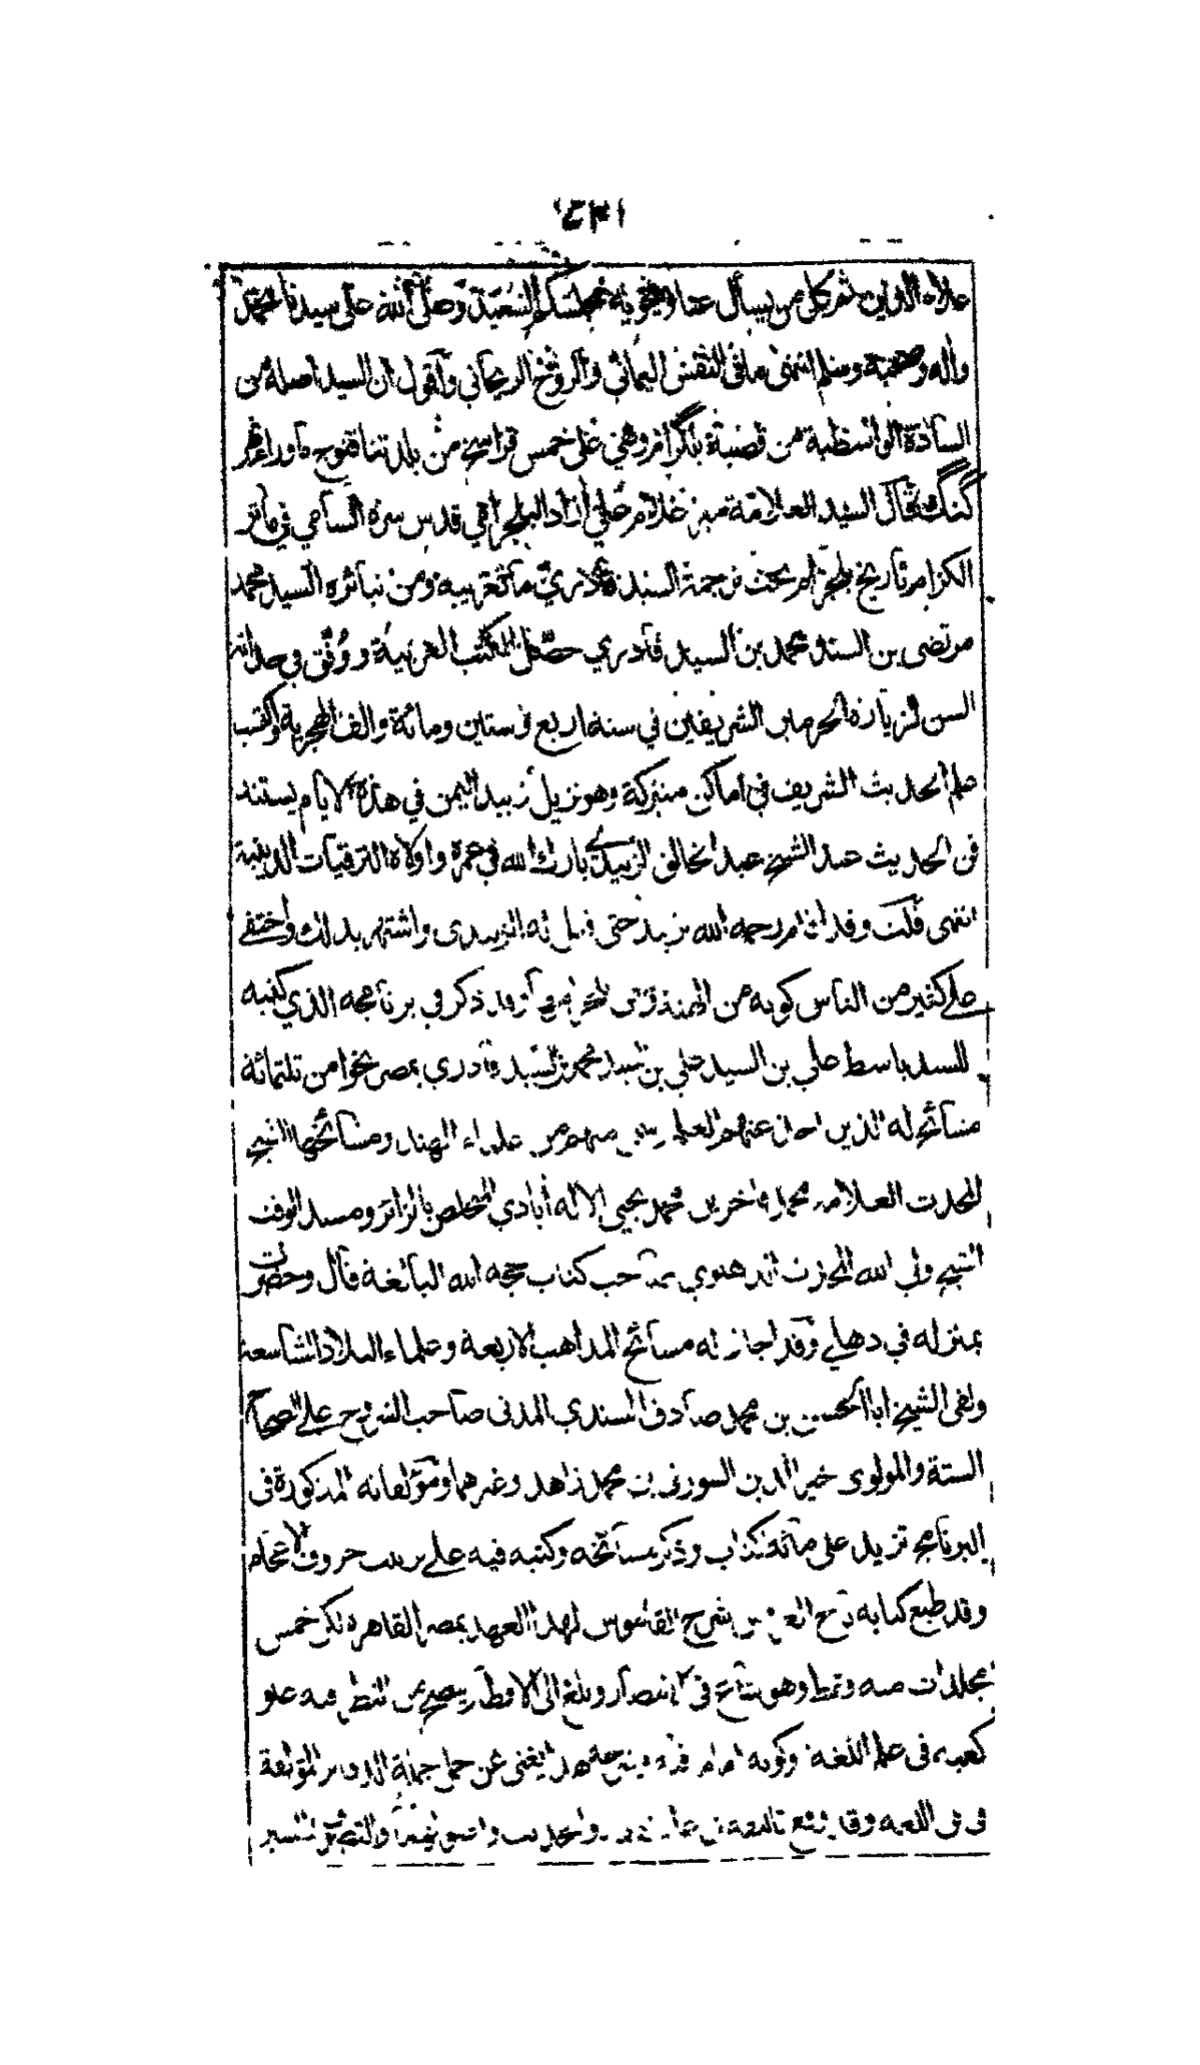 علاء الدين ثم كل من يسأل عنا ويحويه مجلسكم السعيد وصلى الله على سيدنا محمد
وآله وصحبه وسلم انتهى ما في النفس اليماني والروح الريحاني وأقول ان السيد اصله من
السادة الواسطية من قصبة بلگرام وهي على خمس فراسخ من بلدتنا قنوج ماوراء نهر
گنگ قال السيد العلامة مير غلام علي آزاد البلجرامي قدس سره السامي في مآثر
الكرام تاريخ بلجرام بحث ترجمة السيد قادري ما تعريبه ومن نبائره السيد محمد
مرتضى بن السيد محمد بن السيد قادري حصّل الكتب العربية ووُفّق في حداثة
السن لزيارة الحرمين الشريفين في سنة اربع وستين ومائة والف الهجرية واكتسب
علم الحديث الشريف في اماكن متبركة وهو نزيل زبيد اليمن في هذه الايام يستند
في الحديث عند الشيخ عبد الخالق الزبيدي بارك الله في عمره واولاه الترقيات الدينية
انتهى قلت وقد اقام رحمه الله بزبيد حتى قيل له الزبيدي واشتهر بذلك واختفى
على كثير من الناس كونه من الهند وقد ذكر في برنامجه الذي كتبه
للسيد باسط علي بن السيد علي بن السيد محمد بن السيد قادري بمصر نحوا من ثلثمائة
مشائخ له الذين اخذ عنهم العلم منهم من علماء الهند ومشائخها الشيخ
المحدث العلامة محمد فاخر بن محمد يحيى الاله أبادي المتخلص بالزائر ومسند الوقت
الشيخ ولي الله المحدث الدهلوي صاحب كتاب حجة الله البالغة قال وحضرت
بمنزله في دهلي وقد اجاز له مشائخ المذاهب الاربعة وعلماء البلاد الشاسعة
ولقي الشيخ ابا الحسن بن محمد صادق السندي المدني صاحب الشروح على الصحاح
الستة والمولوي خير الدين السورتي بن محمد زاهد وغيرهما ومؤلفاته المذكورة في
البرنامج تزيد على مائة كتاب وذكر مشائخه وكتبه فيه على ترتيب حروف الاعجام
وقد طبع كتابه تاج العروس شرح القاموس لهذا العهد بمصر القاهرة لكن خمس
مجلدات منه وقط وهو شائع في الامصار وبلغ الى الاقطار يتضح من النظر فيه علو
كعبه في علم اللغة وكونه امام يغني عن حمل جملة الدفاتر المؤلفة
في فن اللغة وقد وقع تاليفه والحديث واصولهما والتصوف والسير